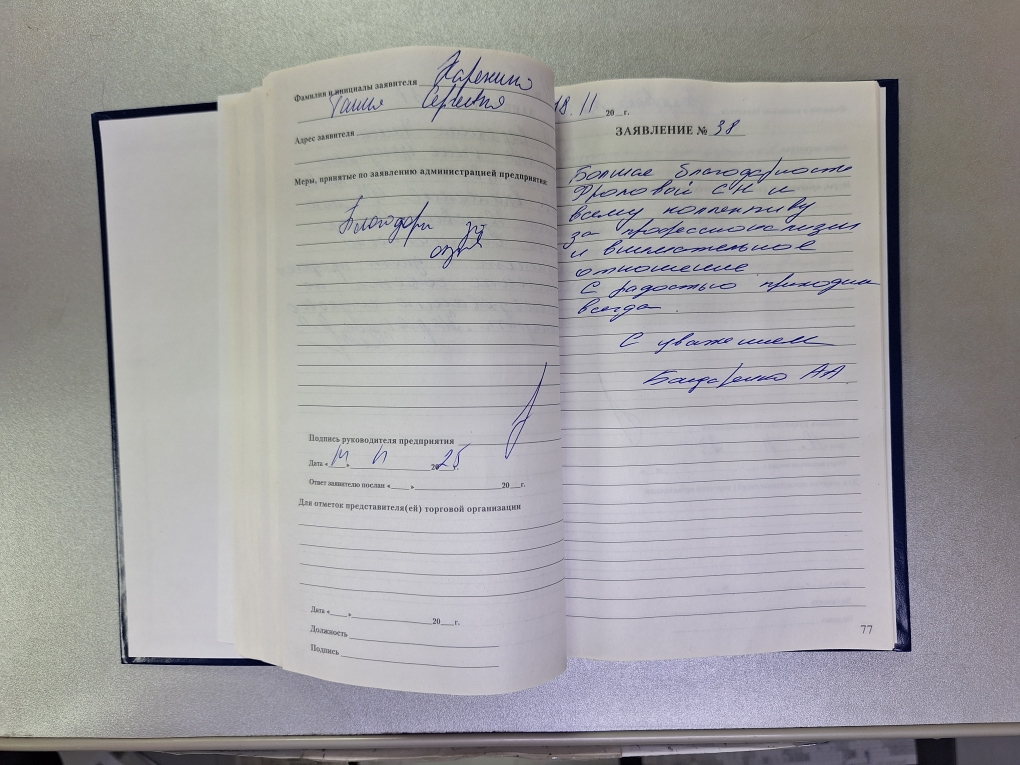 Фамилия и инициалы заявителя Каренина
Сергеевна
Адрес заявителя
Меры, принятые по заявлению администрацией предприятия:
Благодарим за
отзыв
Подпись руководителя предприятия
Дата « » 11 2025 г.
Ответ заявителю послан «___» 20__г.
Для отметок представителя(ей) торговой организации
Дата «___» 20__г.
Должность
Подпись
18.11 20__г.
ЗАЯВЛЕНИЕ № 38
Большая благодарность
Фроловой С Н и
всему коллективу
за профессионализм
и внимательное
отношение.
С радостью приходим
всегда.
С уважением
Бондаренко АА.
77